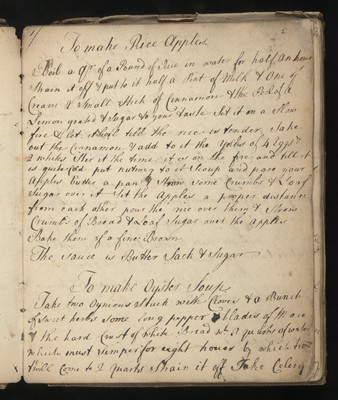 To make Rice Apples
Boil a qr. of a Pound of Rice in water for half an hour
Strain it off & put to it half a Pint of Milk & One of
Cream & Small Stick of Cinnamon & the Peel of a
Lemon grated & Sugar to your taste Set it on a Slow
fire & let till the rice is tender Take
out the Cinnamon & add to it the Yolks of 4 Eggs
2 whites Stir it the time it is on the fire and till it
is quite cold put nutmeg to it Scoup and pare your
Apples Butter a pan & Strew some Crumbs & Loaf
Sugar over it Set the Apples a proper distance
from each other pour the rice over them & Strew
Crumbs of Bread & Loaf Sugar over the Apples
Bake them of a fine Brown
The Sauce is Butter Sack & Sugar
To make Soup
Take two Onions Stuck with Cloves & a Bunch
of Sweet herbs some long pepper blades of Mace
& the hard Crust of White Bread quarts of water
which must simper for eight hours by which time
will Come to 2 quarts Strain it off Take Celery